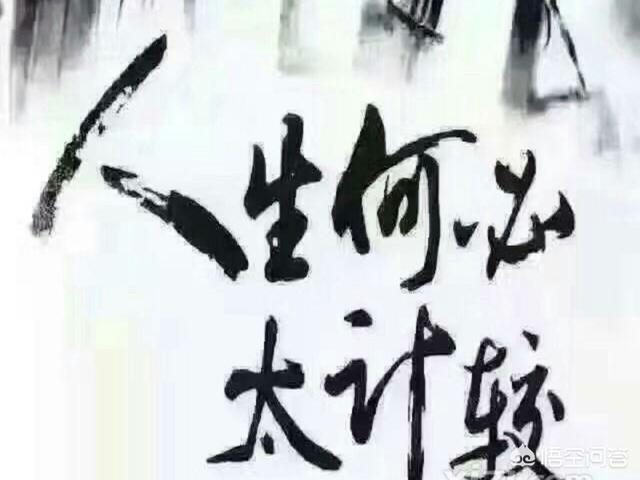 人生何必
太计较
悟空问答